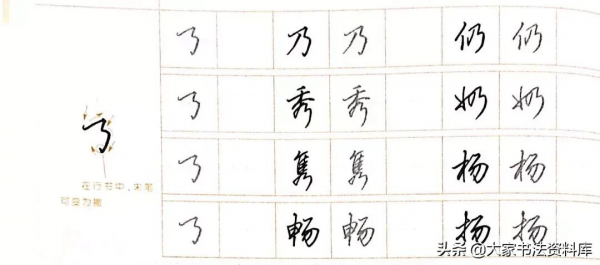 乃 乃 仍 仍
秀 秀 奶 奶
隽 隽 杨 杨
畅 畅 扬 扬
在行书中,末笔
可变为撇
头条 @大家书法资料库